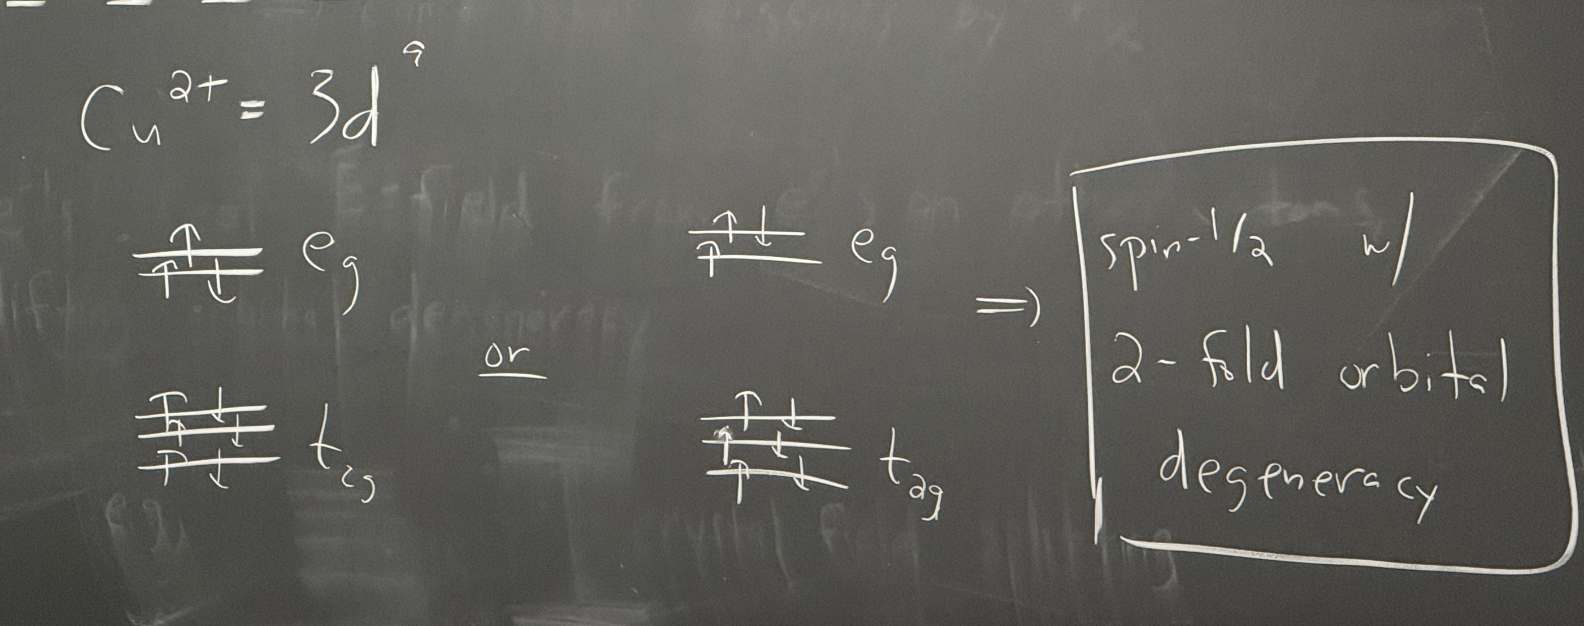 Cu²⁺ = 3d⁹
↑
↑ ↓ e_g
↑ ↓ e_g
↑
or
⇒
↑ ↓
↑ ↓ t₂g
↑ ↓
↑ ↓
↑ ↓ t₂g
↑ ↓
spin-1/2 w/
2-fold orbital
degeneracy